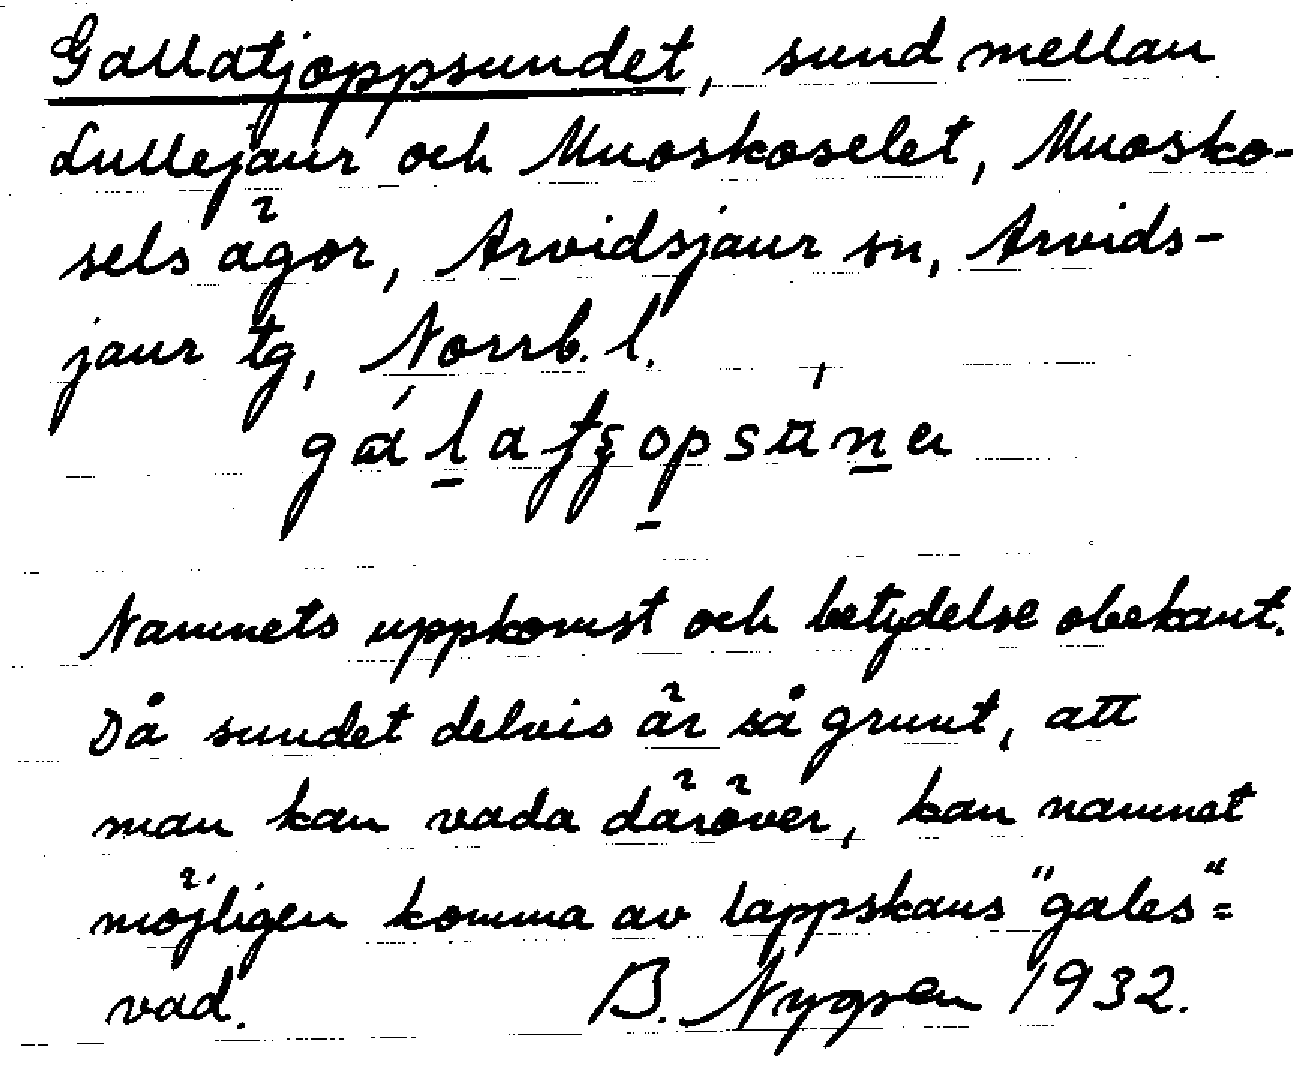 Gallatjoppsundet, sund mellan
Lullejaur och Muoskoselet, Muosko-
sels ägor, Arvidsjaur sn, Arvids-
jaur tg, Norrb. l.
Namnets uppkomst och betydelse obekant.
Då sundet delvis är så grunt, att
man kan vada däröver, kan namnet
möjligen komma av lappskans "gales"=
vad. B. Nygren 1932.